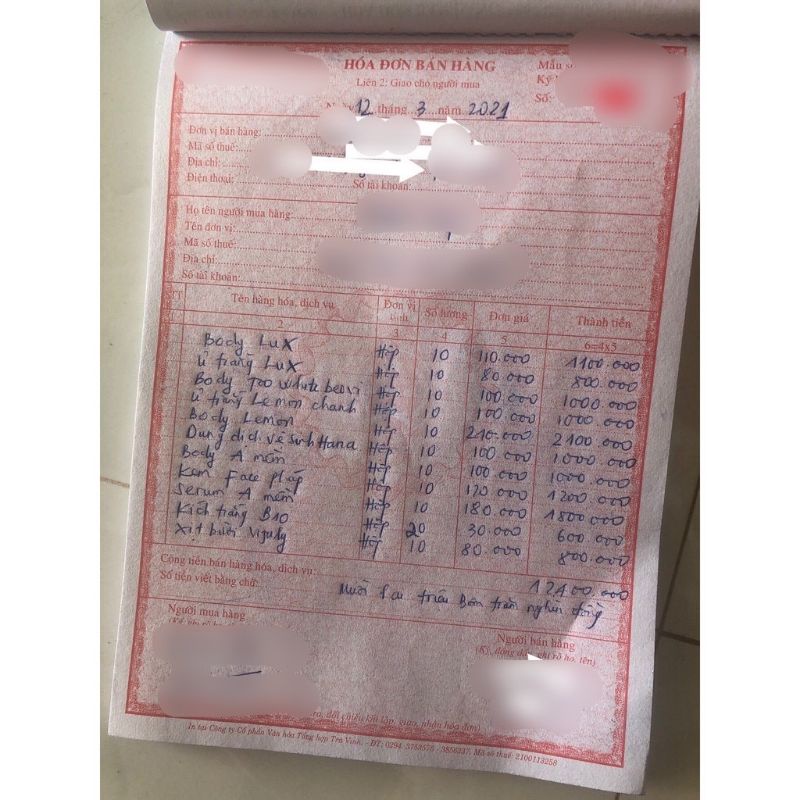 HÓA ĐƠN BÁN HÀNG
Mẫu số
Liên 2: Giao cho người mua
Ký
Số:
Ngày 12 tháng 3 năm 2021
Đơn vị bán hàng:
Mã số thuế:
Địa chỉ:
Điện thoại: Số tài khoản:
Họ tên người mua hàng:
Tên đơn vị:
Mã số thuế:
Địa chỉ:
Số tài khoản:
STT Tên hàng hóa, dịch vụ Đơn vị tính Số lượng Đơn giá Thành tiền
2 3 4 5 6=4x5
Body Lux Hộp 10 110.000 1100.000
Ủ trắng Lux Hộp 10 80.000 800.000
Body 700 white beovi Hộp 10 100.000 1000.000
Ủ trắng Lemon chanh Hộp 10 100.000 1000.000
Body Lemon Hộp 10 210.000 2100.000
Dung dịch vệ sinh Hana Hộp 10 100.000 1000.000
Body A mềm Hộp 10 100.000 1000.000
Kem Face pháp Hộp 10 120.000 1200.000
Serum A mềm Hộp 10 180.000 1800.000
Kích trắng B10 Hộp 20 30.000 600.000
Xịt bưởi Hộp 10 80.000 800.000
Cộng tiền bán hàng hóa, dịch vụ: 12400.000
Số tiền viết bằng chữ: Mười hai triệu Bốn trăm nghìn đồng
Người mua hàng Người bán hàng
(Ký, đóng dấu, ghi rõ họ, tên)
tra, đối chiếu khi lập, giao, nhận hóa đơn)
In tại Công ty Cổ phần Văn hóa Tổng hợp Trà Vinh. - ĐT: 0294. 3753576 - 3856237. Mã số thuế: 2100113256